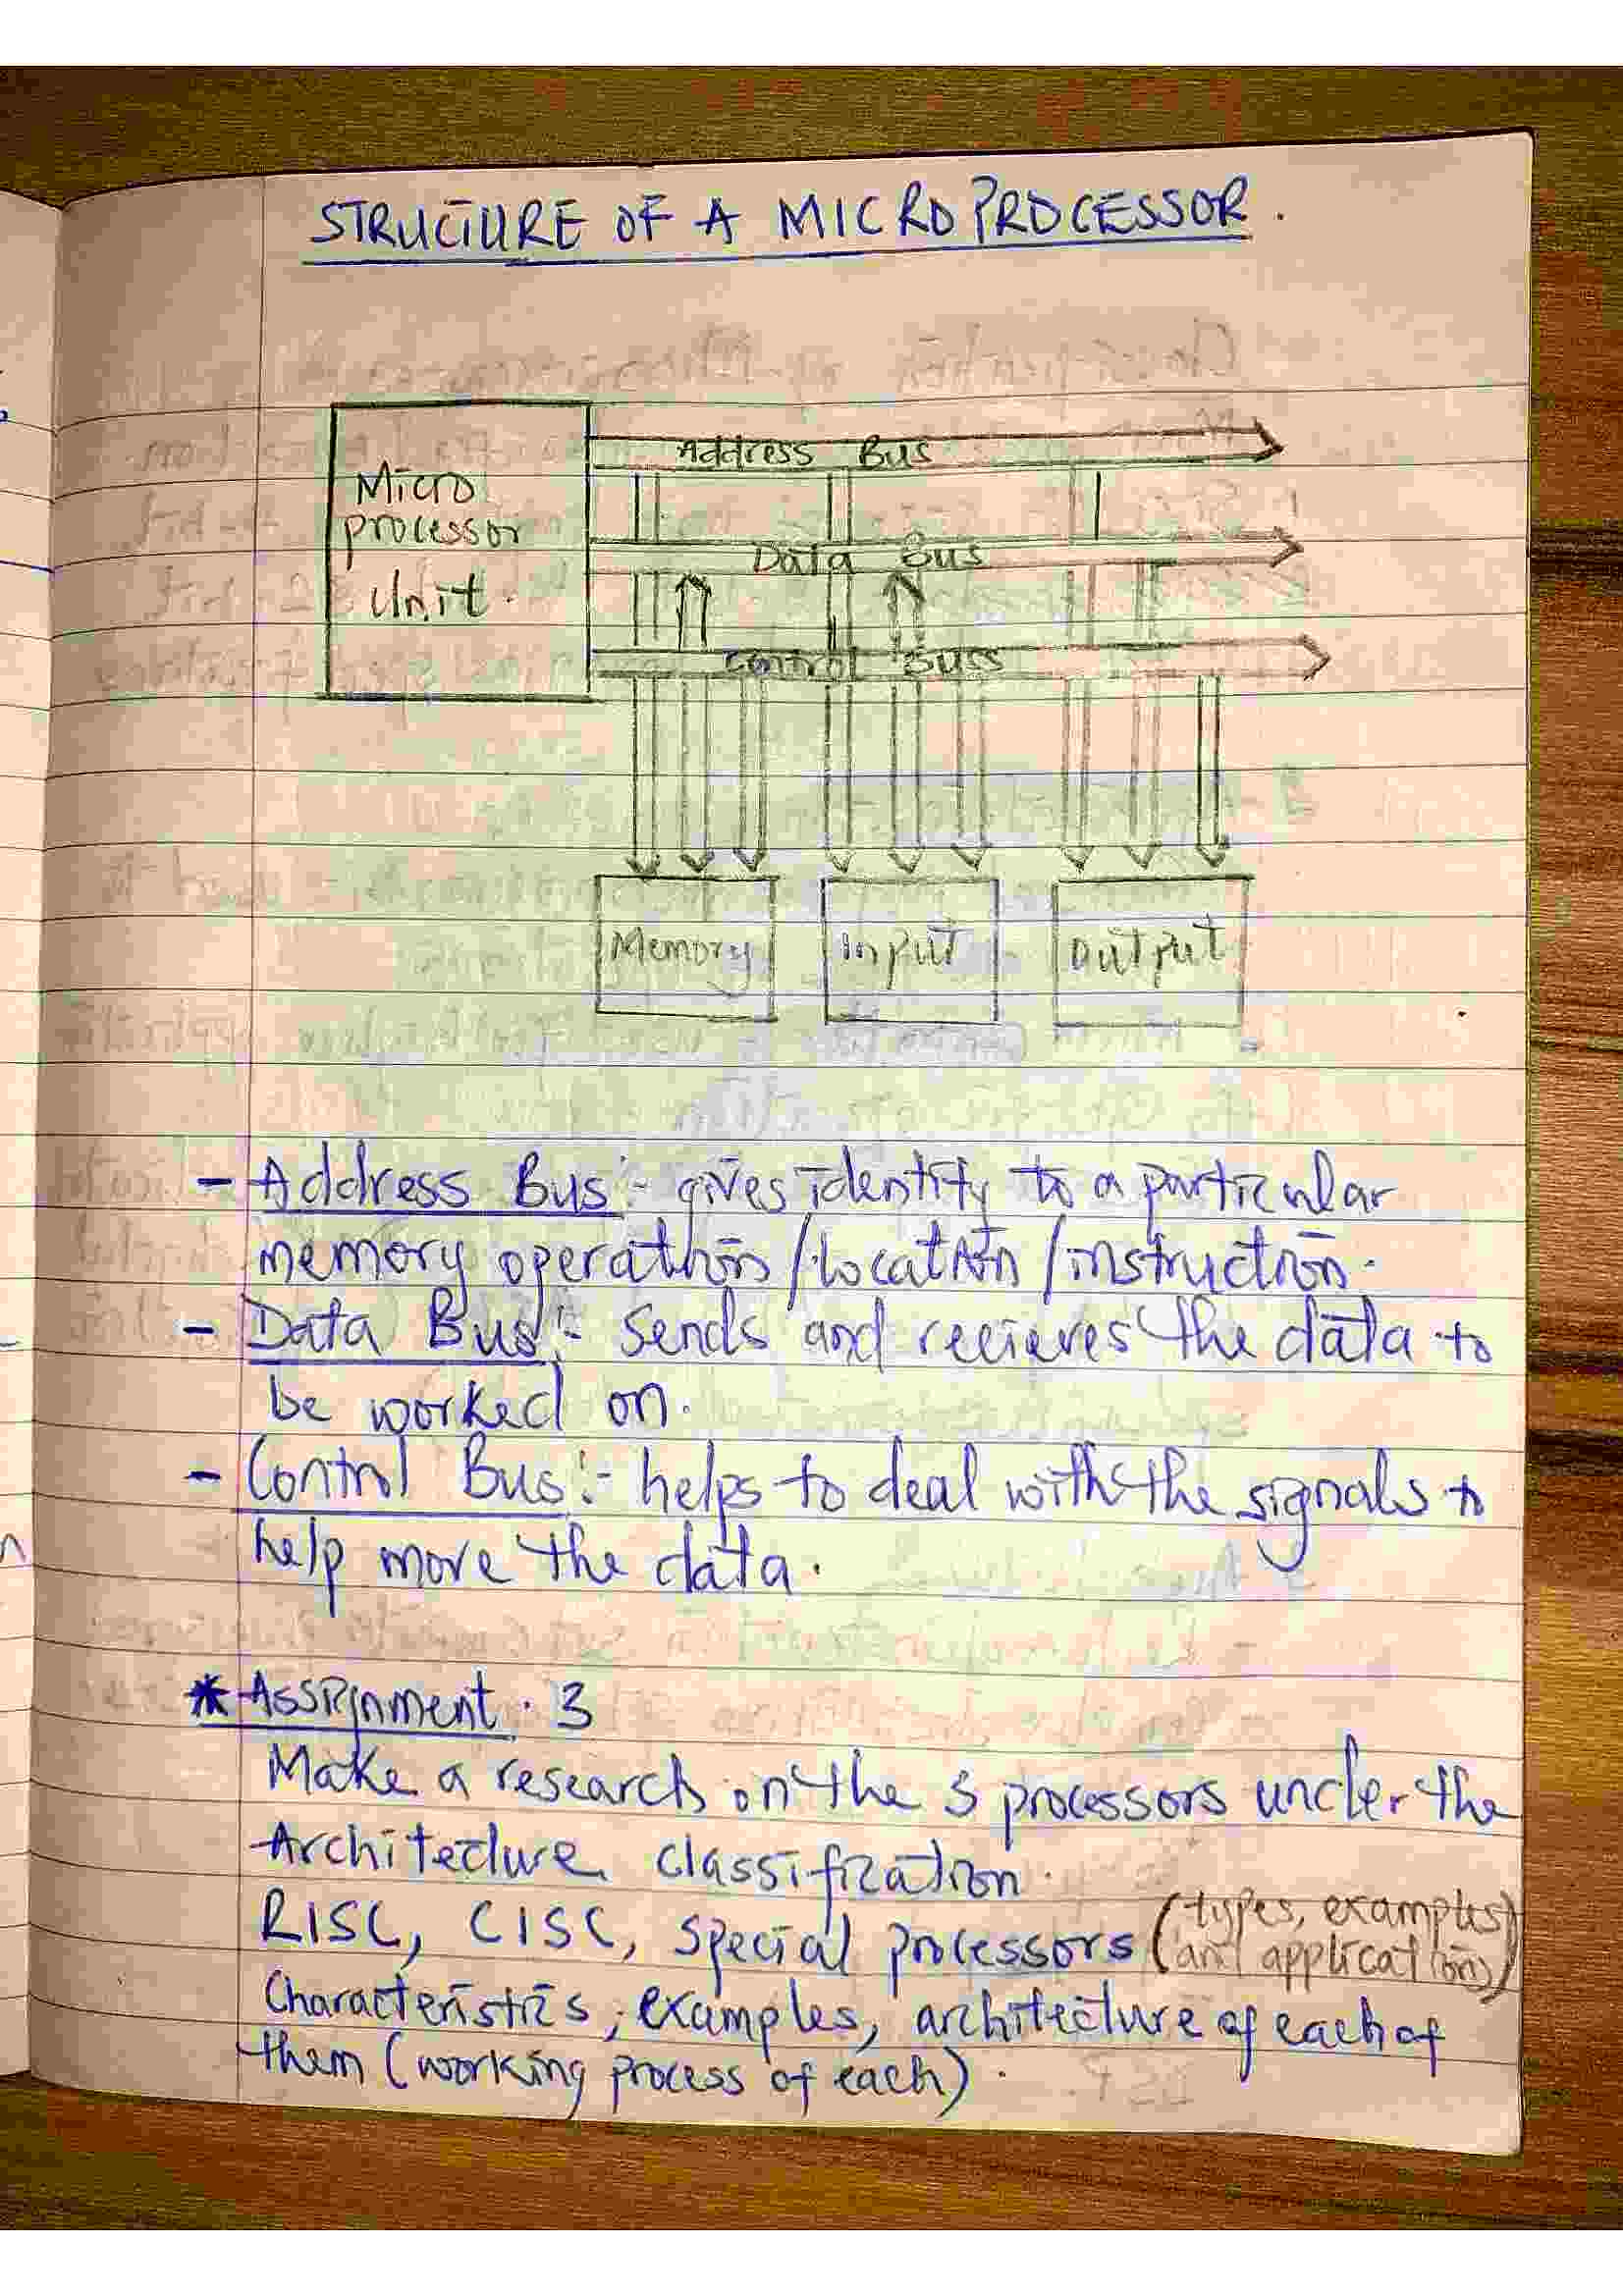 STRUCTURE OF A MICROPROCESSOR.
Address Bus
Micro
processor
Unit.
Data Bus
Control Buss
Memory Input Output
- Address Bus:- gives identity to a particular
memory operation/location/instruction.
- Data Bus:- Sends and recieves the data to
be worked on.
- Control Bus:- helps to deal with the signals to
help move the data.
* Assignment. 3
Make a research on the 3 processors under the
Architecture classification.
RISC, CISC, Special processors (types, examples
and application)
Characteristics, examples, architecture of each of
them (working process of each).